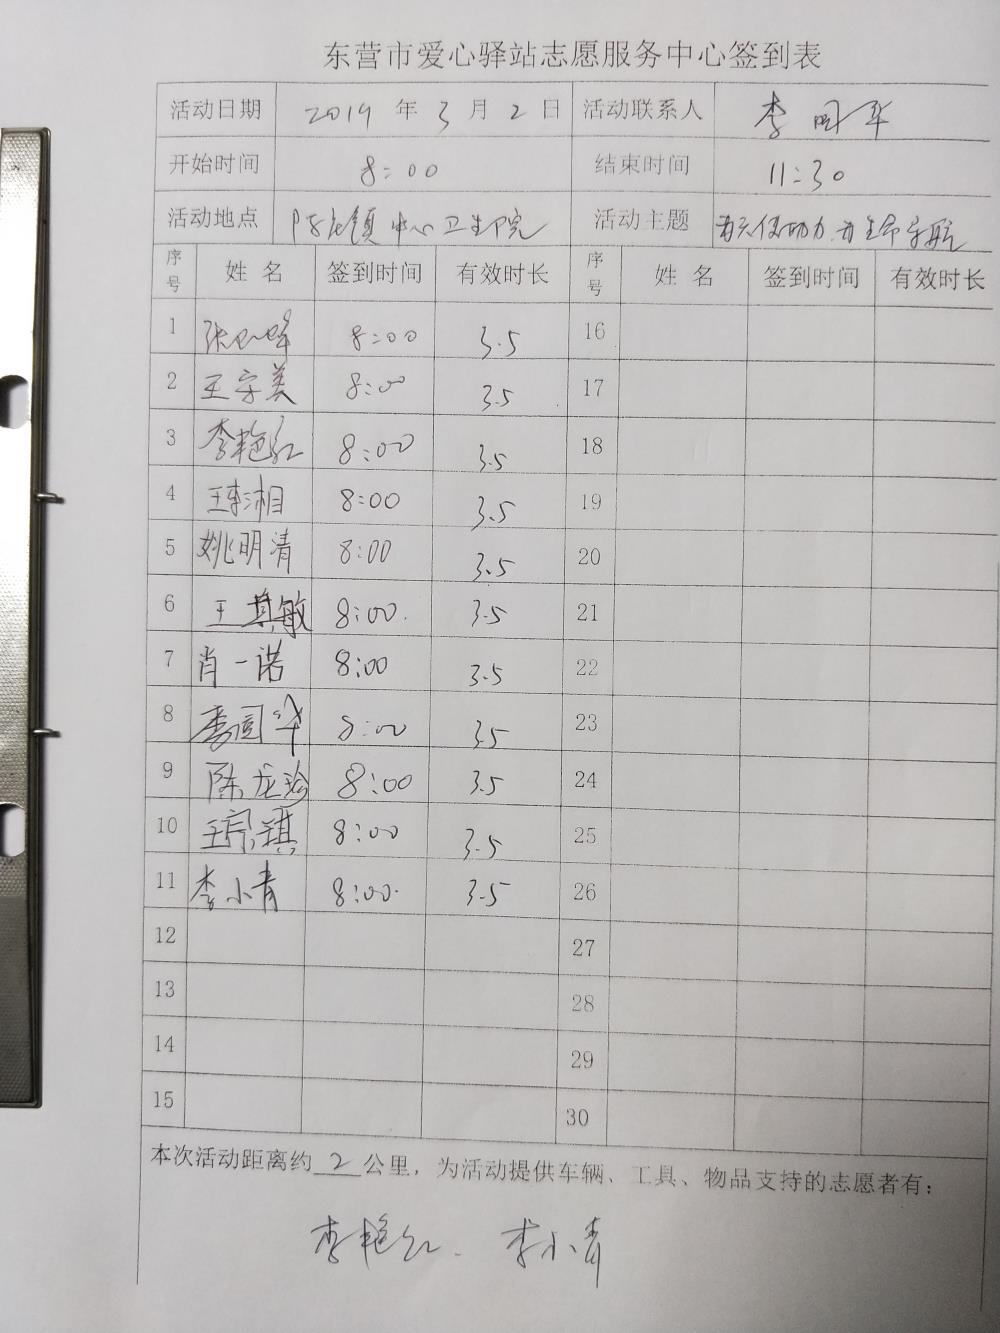 东营市爱心驿站志愿服务中心签到表
活动日期 2019 年 3 月 2 日 活动联系人 李国华
开始时间 8:00 结束时间 11:30
活动地点 陈庄镇中心卫生院 活动主题
序号 姓名 签到时间 有效时长 序号 姓名 签到时间 有效时长
1 8:00 3.5 16
2 王宗美 8:00 3.5 17
3 李艳红 8:00 3.5 18
4 8:00 3.5 19
5 姚明清 8:00 3.5 20
6 王其敏 8:00 3.5 21
7 肖一诺 8:00 3.5 22
8 李国华 8:00 3.5 23
9 陈龙珍 8:00 3.5 24
10 王宗祺 8:00 3.5 25
11 李小青 8:00 3.5 26
12 27
13 28
14 29
15 30
本次活动距离约 2 公里，为活动提供车辆、工具、物品支持的志愿者有：
李艳红、李小青